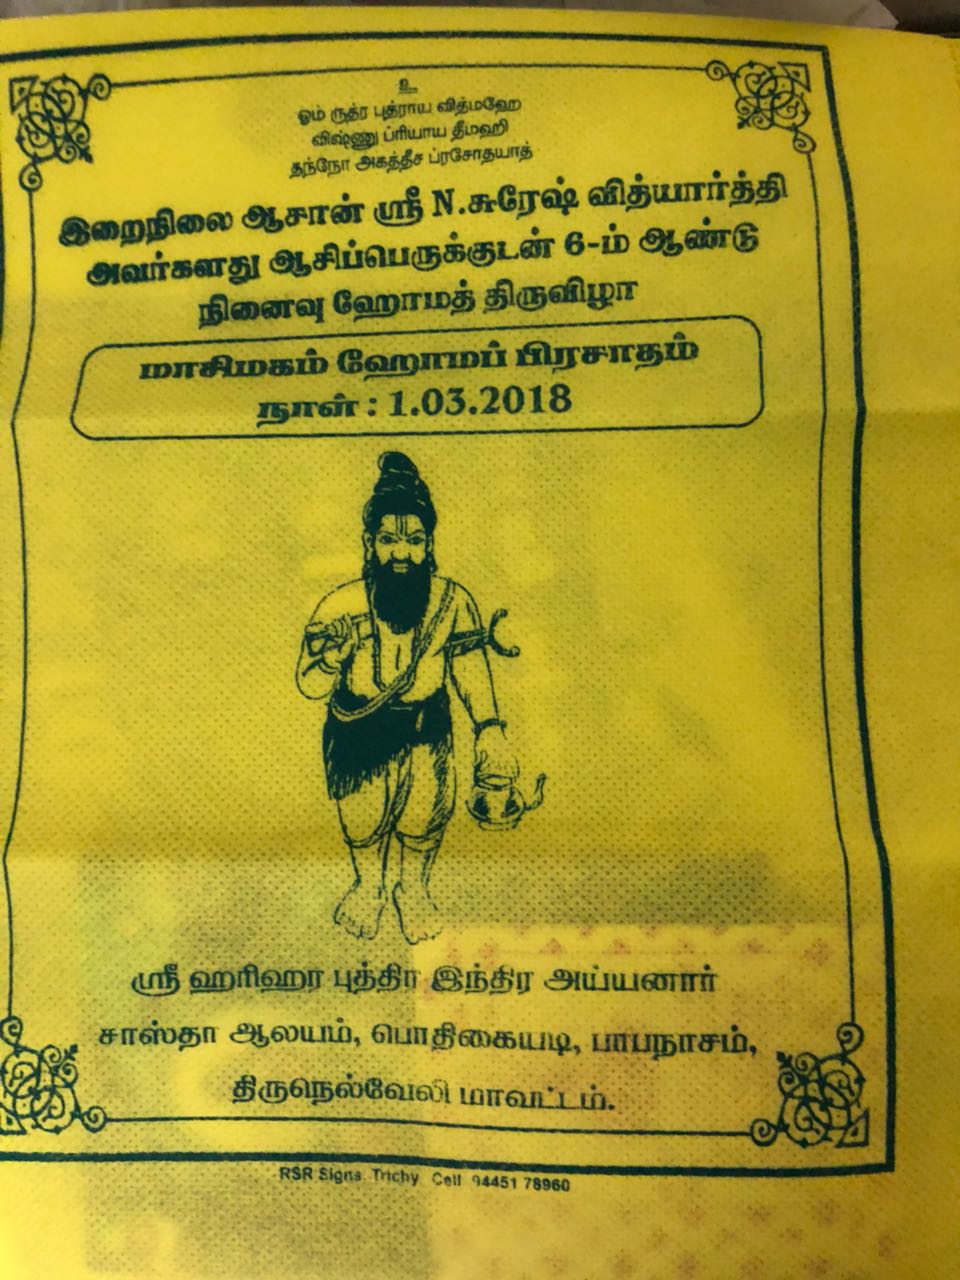 உ
ஓம் ருத்ர புத்ராய வித்மஹே
விஷ்ணு ப்ரியாய தீமஹி
தந்நோ அகத்தீச ப்ரசோதயாத்
இறைநிலை ஆசான் ஸ்ரீ N.சுரேஷ் வித்யார்த்தி
அவர்களது ஆசிப்பெருக்குடன் 6-ம் ஆண்டு
நினைவு ஹோமத் திருவிழா
மாசிமகம் ஹோமப் பிரசாதம்
நாள் : 1.03.2018
ஸ்ரீ ஹரிஹர புத்திர இந்திர அய்யனார்
சாஸ்தா ஆலயம், பொதிகையடி, பாபநாசம்,
திருநெல்வேலி மாவட்டம்.
RSR Signs Trichy Cell 94451 78960